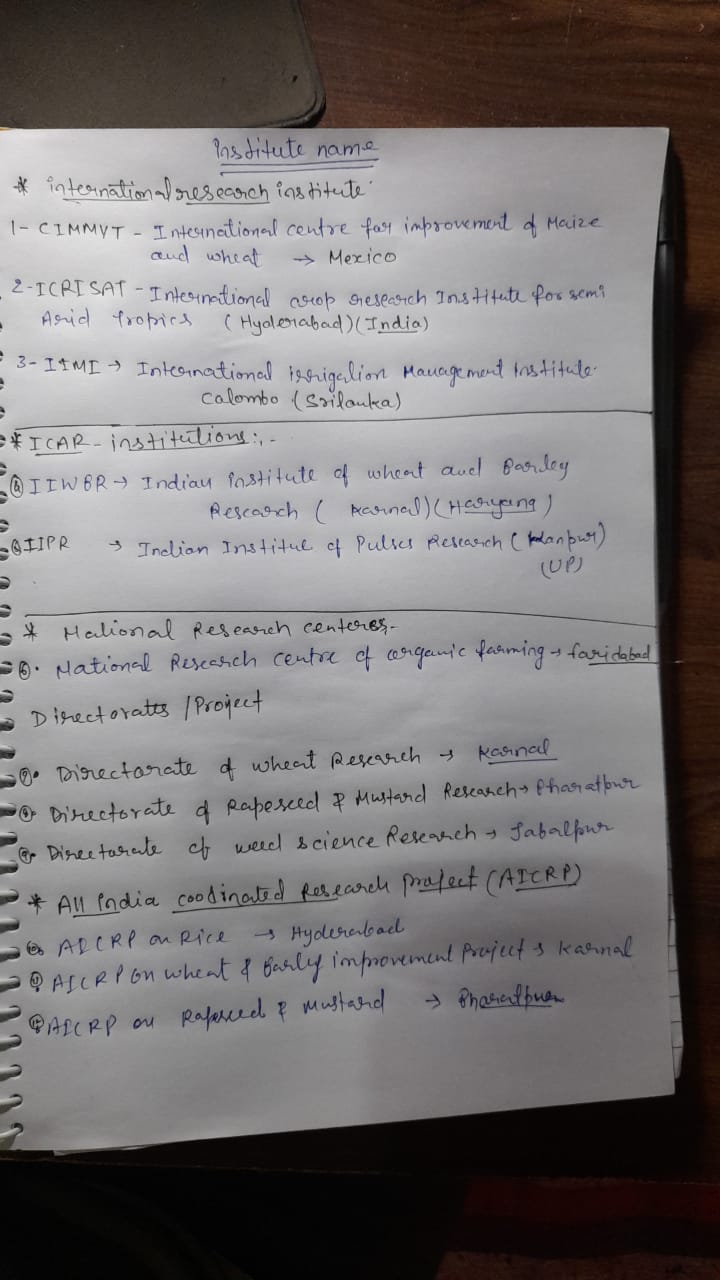 Institute name
* international research institute
1- CIMMYT - International centre for improvement of Maize
and wheat → Mexico
2- ICRISAT - International crop research Institute for semi
Arid Tropics (Hyderabad) (India)
3- IIMI → International irrigation Management Institute.
Calombo (Srilanka)
* ICAR - institutions:, -
④ IIWBR → Indian institute of wheat and Barley
Research ( Karnal) (Haryana)
⑤ IIPR → Indian Institue of Pulses Research (Kanpur)
(UP)
* National Research centeres,-
⑥. National Research centre of organic farming → faridabad
Directoratts / Project
⑦. Directorate of wheat Research → Karnal
⑧ Directorate of Rapeseed & Mustard Research → Bharatpur
⑨. Directorate of weed science Research → Jabalpur
* All India coodinated Research project (AICRP)
⑩ AICRP on Rice → Hyderabad
⑪ AICRP on wheat & Barly improvement Project → Karnal
⑫ AICRP on Rapeseed & Mustard → Bharatpur